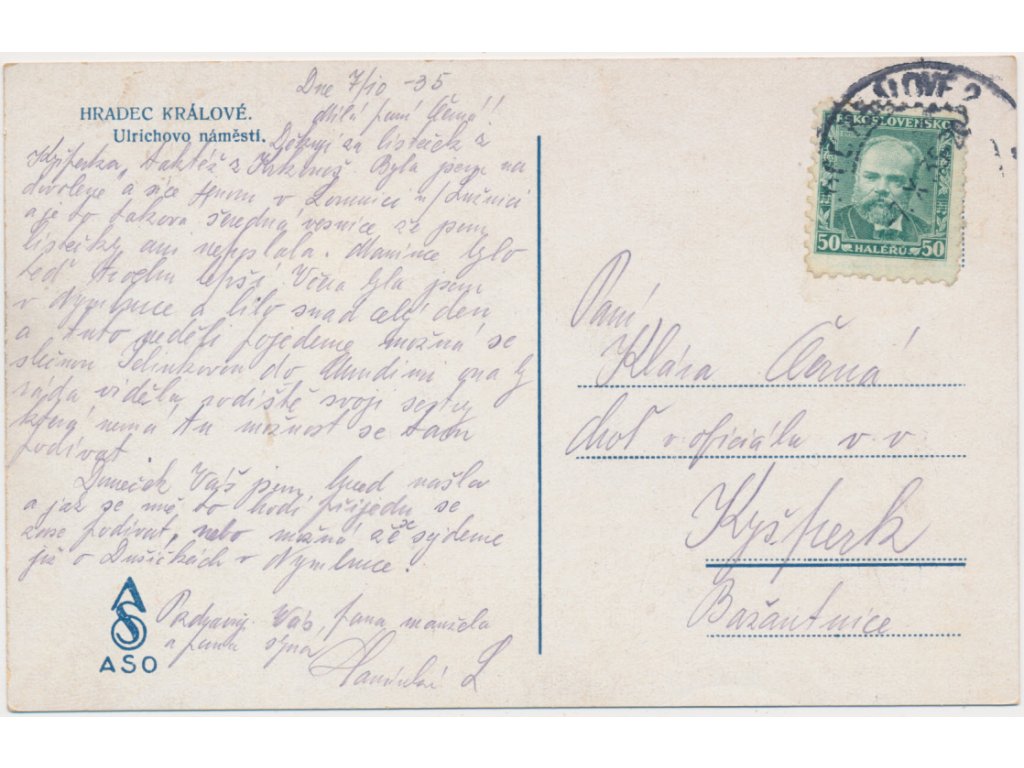 HRADEC KRÁLOVÉ.
Ulrichovo náměstí.
Dne 7/10 -35
Milá paní Černá!
Děkuji za lísteček z
Kyšperka, taktéž z Krkonoš. Byla jsem na
dovolené a sice v Lomnici n/ Lužnicí
a je to taková vesnice že jsem
lístečky ani neposlala. Mamince bylo
teď trochu lepší. Včera byla jsem
v Nymburce a lilo snad celý den
a tuto neděli pojedeme možná se
slečnou Jelínkovou do by
ráda viděla rodiště svojí sestry
která nemá tu možnost se tam
podívat.
Domeček Váš jsem hned našla
a jak se mně to hodí přijedu se
zase podívat, nebo možná že se sejdeme
již o Dušičkách v Nymburce.
Pozdravuji Vás, pana manžela
a pana syna
L
ASO
KRÁLOVÉ 2
ČESKOSLOVENSKO
50 HALÉŘŮ 50
Paní
Klára Černá
choť v. oficiála v. v.
Kyšperk
Bažantnice